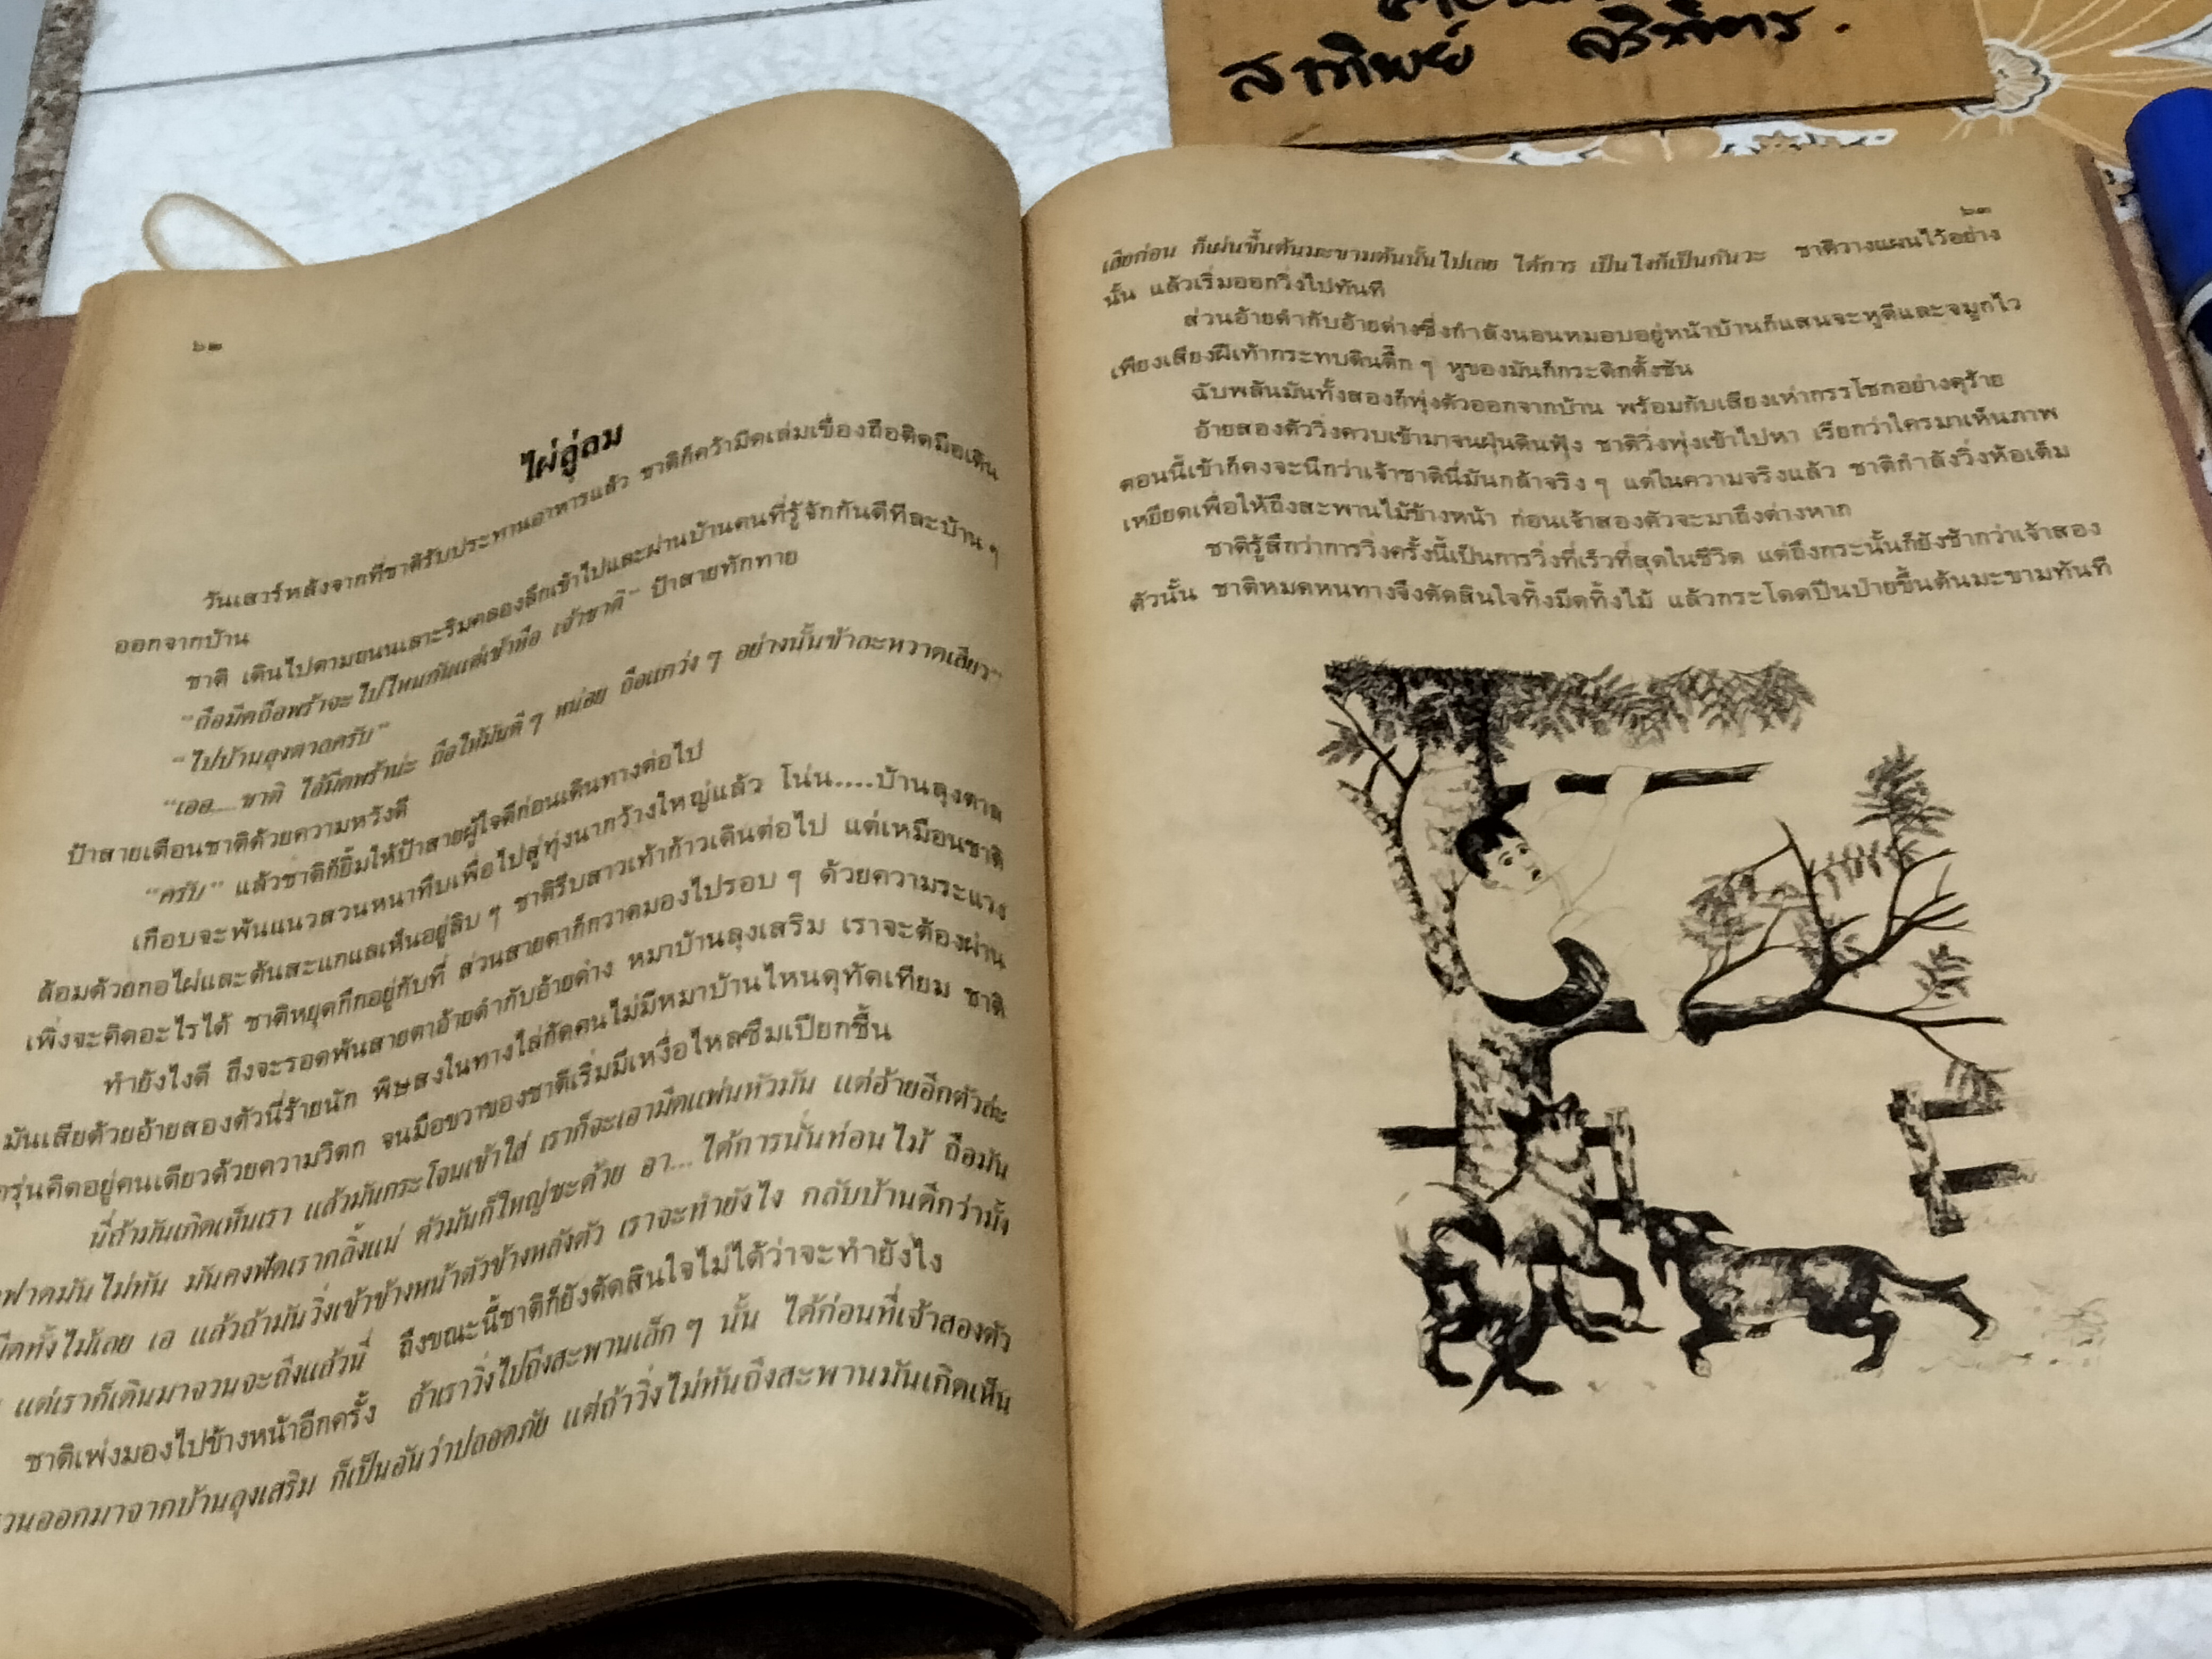 สาทิพย์
๖๒
ไผ่ลู่ลม
วันเสาร์หลังจากที่ชาติรับประทานอาหารแล้ว ชาติก็คว้ามีดเล่มเขื่องถือติดมือเดิน
ออกจากบ้าน
ชาติ เดินไปตามถนนเลาะริมคลองลึกเข้าไปและผ่านบ้านคนที่รู้จักกันดีทีละบ้าน ๆ
“ถือมีดถือพร้าจะไปไหนกันแต่เช้าหือ เจ้าชาติ” ป้าสายทักทาย
“ไปบ้านลุงตาลครับ”
“เออ....ชาติ ไอ้มีดพร้าน่ะ ถือให้มันดี ๆ หน่อย ถือแกว่ง ๆ อย่างนั้นข้าละหวาดเสียว”
ป้าสายเตือนชาติด้วยความหวังดี
“ครับ” แล้วชาติก็ยิ้มให้ป้าสายผู้ใจดีก่อนเดินทางต่อไป
เกือบจะพ้นแนวสวนหนาทึบเพื่อไปสู่ทุ่งนากว้างใหญ่แล้ว โน่น....บ้านลุงตาล
ล้อมด้วยกอไผ่และต้นสะแกแลเห็นอยู่ลิบ ๆ ชาติรีบสาวเท้าก้าวเดินต่อไป แต่เหมือนชาติ
เพิ่งจะคิดอะไรได้ ชาติหยุดกึกอยู่กับที่ ส่วนสายตาก็กวาดมองไปรอบ ๆ ด้วยความระแวง
ทำยังไงดี ถึงจะรอดพ้นสายตาอ้ายดำกับอ้ายด่าง หมาบ้านลุงเสริม เราจะต้องผ่าน
มันเสียด้วยอ้ายสองตัวนี่ร้ายนัก พิษสงในทางไล่กัดคนไม่มีหมาบ้านไหนดุทัดเทียม ชาติ
ครุ่นคิดอยู่คนเดียวด้วยความวิตก จนมือขวาของชาติเริ่มมีเหงื่อไหลซึมเปียกชื้น
นี่ถ้ามันเกิดเห็นเรา แล้วมันกระโจนเข้าใส่ เราก็จะเอามีดแพ่นหัวมัน แต่อ้ายอีกตัวล่ะ
ฟาดมันไม่ทัน มันคงฟัดเรากลิ้งแน่ ตัวมันก็ใหญ่ซะด้วย อา... ได้การนั่นท่อนไม้ ถือมัน
มีดทั้งไม้เลย เอ แล้วถ้ามันวิ่งเข้าข้างหน้าตัวข้างหลังตัว เราจะทำยังไง กลับบ้านดีกว่ามั้ง
แต่เราก็เดินมาจวนจะถึงแล้วนี่ ถึงขณะนี้ชาติก็ยังตัดสินใจไม่ได้ว่าจะทำยังไง
ชาติเพ่งมองไปข้างหน้าอีกครั้ง ถ้าเราวิ่งไปถึงสะพานเล็ก ๆ นั้น ได้ก่อนที่เจ้าสองตัว
ออกมาจากบ้านลุงเสริม ก็เป็นอันว่าปลอดภัย แต่ถ้าวิ่งไม่ทันถึงสะพานมันเกิดเห็น
๖๓
เสียก่อน ก็เผ่นขึ้นต้นมะขามต้นนั้นไปเลย ได้การ เป็นไงก็เป็นกันวะ ชาติวางแผนไว้อย่าง
นั้น แล้วเริ่มออกวิ่งไปทันที
ส่วนอ้ายดำกับอ้ายด่างซึ่งกำลังนอนหมอบอยู่หน้าบ้านก็แสนจะหูดีและจมูกไว
เพียงเสียงฝีเท้ากระทบดินตึ้ก ๆ หูของมันก็กระดิกตั้งชัน
ฉับพลันมันทั้งสองก็พุ่งตัวออกจากบ้าน พร้อมกับเสียงเห่ากรรโชกอย่างดุร้าย
อ้ายสองตัววิ่งควบเข้ามาจนฝุ่นดินฟุ้ง ชาติวิ่งพุ่งเข้าไปหา เรียกว่าใครมาเห็นภาพ
ตอนนี้เข้าก็คงจะนึกว่าเจ้าชาตินี่มันกล้าจริง ๆ แต่ในความจริงแล้ว ชาติกำลังวิ่งห้อเต็ม
เหยียดเพื่อให้ถึงสะพานไม้ข้างหน้า ก่อนเจ้าสองตัวจะมาถึงต่างหาก
ชาติรู้สึกว่าการวิ่งครั้งนี้เป็นการวิ่งที่เร็วที่สุดในชีวิต แต่ถึงกระนั้นก็ยังช้ากว่าเจ้าสอง
ตัวนั้น ชาติหมดหนทางจึงตัดสินใจทิ้งมีดทิ้งไม้ แล้วกระโดดปีนป่ายขึ้นต้นมะขามทันที